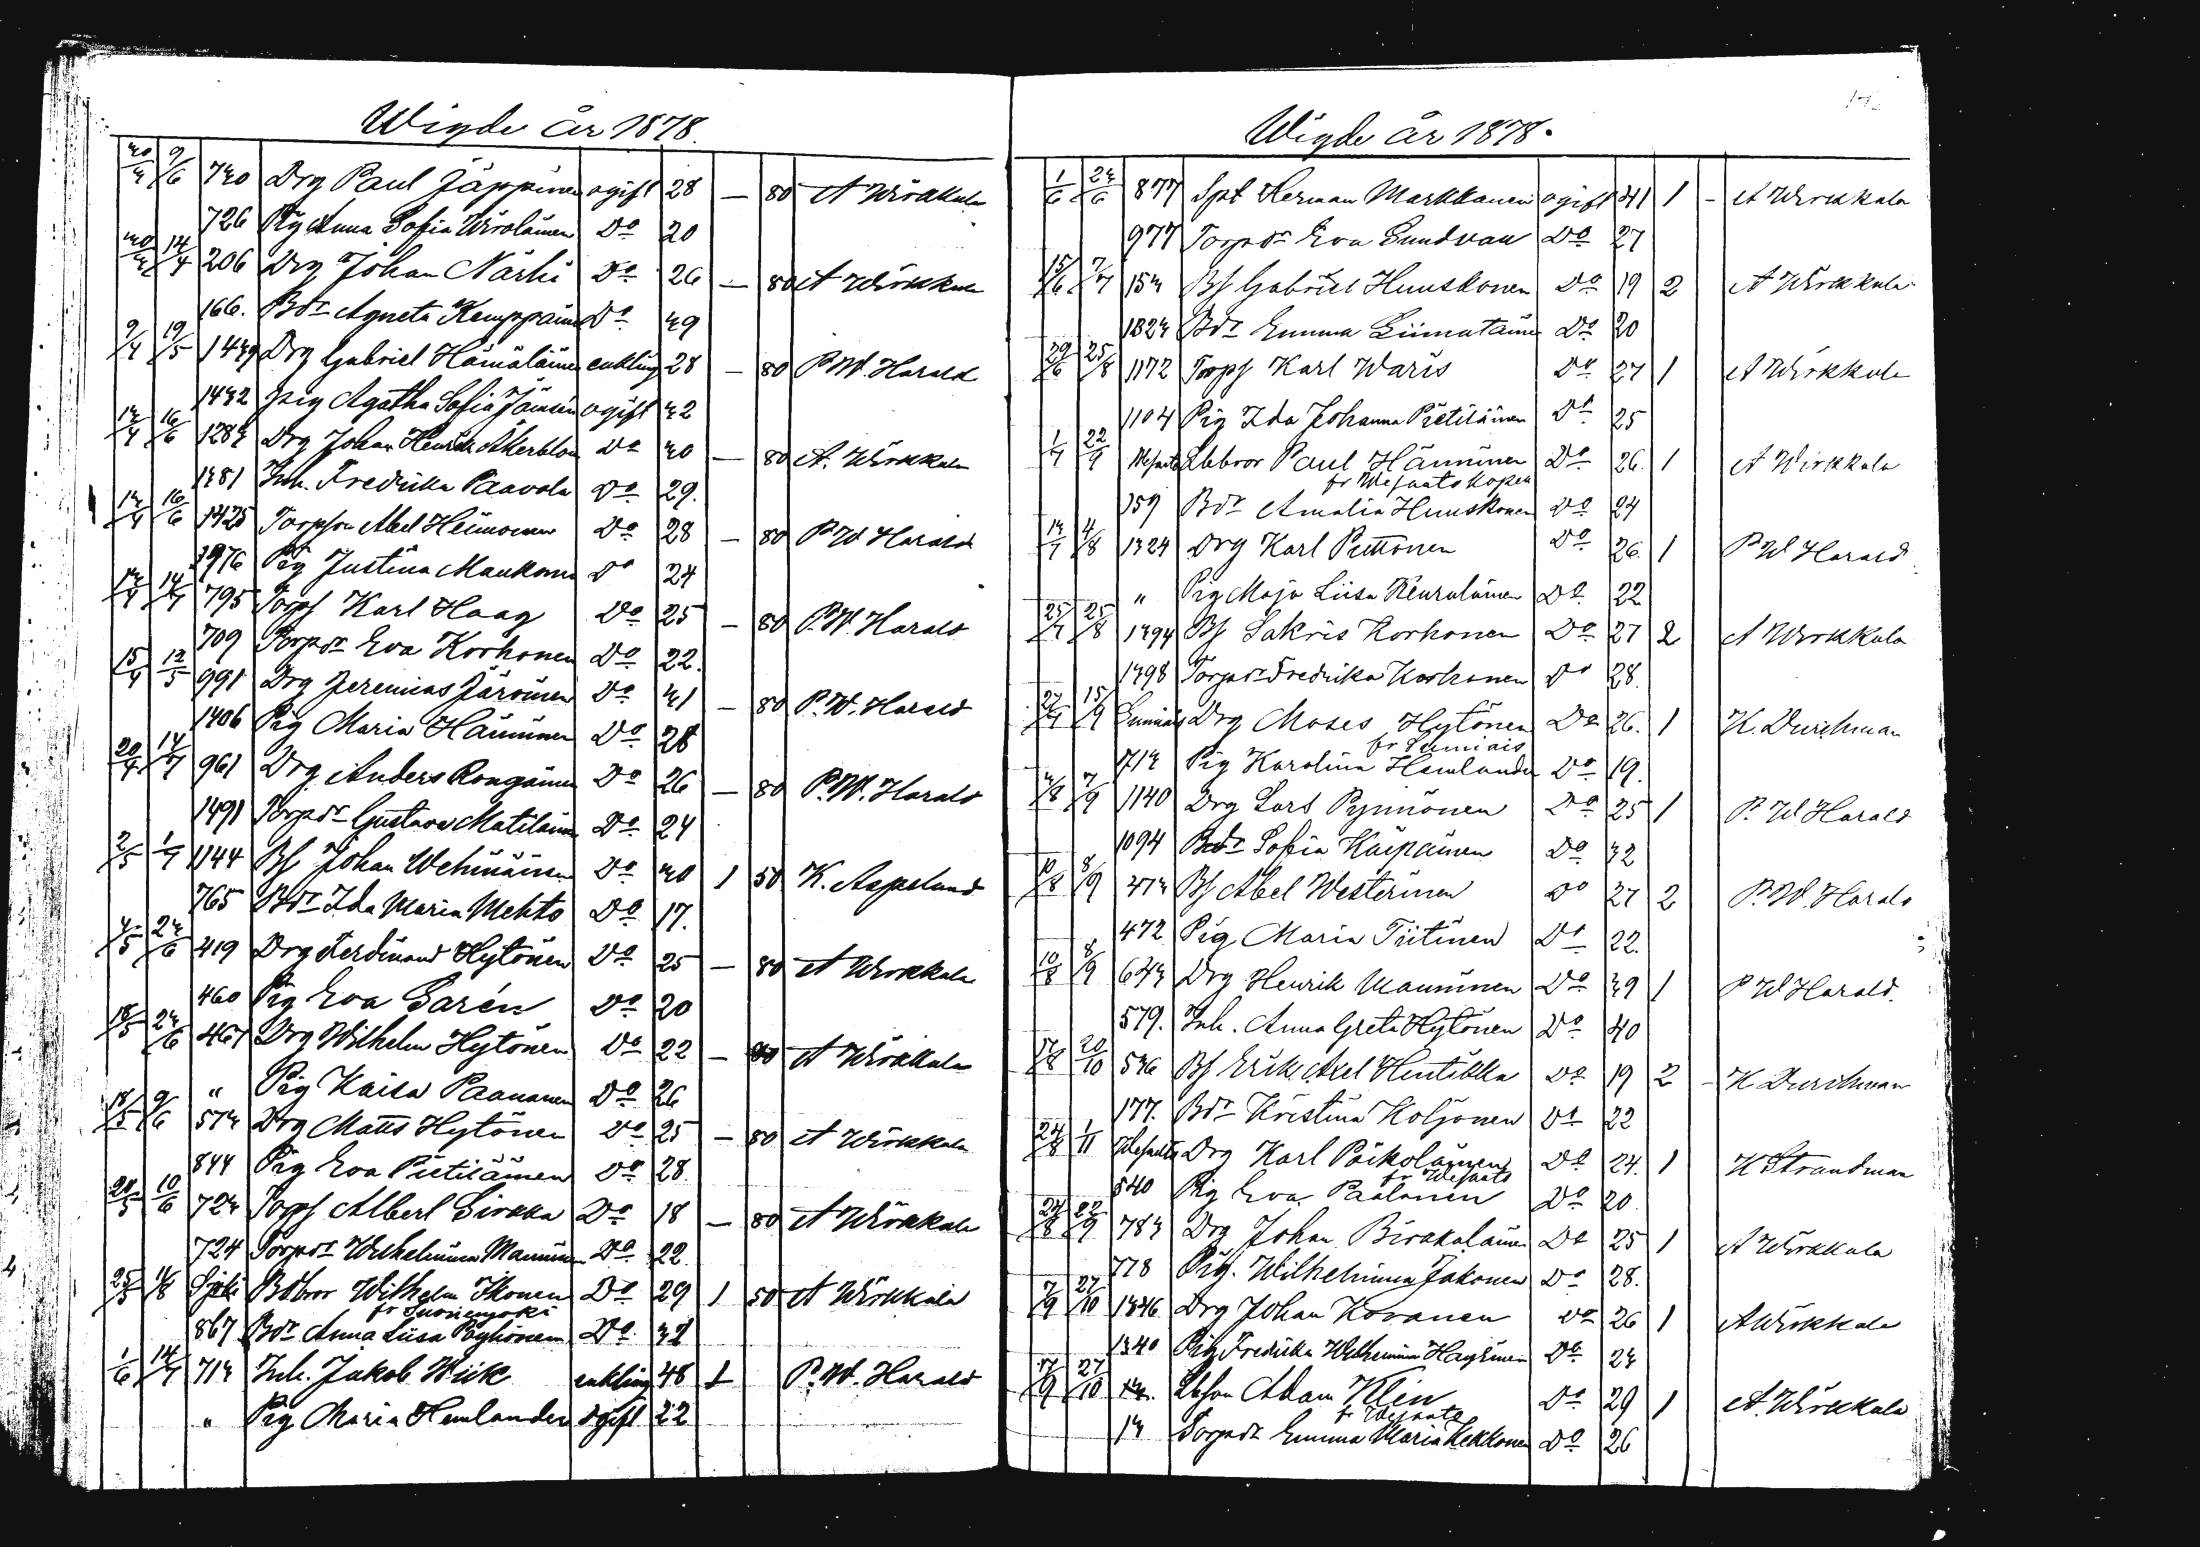 Wigde år 1878.
30/3 9/6 730 Drg Paul Jäppinen ogift 28 — 80 A Wirkkala
726 Pig Anna Sofia Wirolainen Do 20
30/3 14/4 206 Drg Johan Närhi Do 26 — 80 A Wirkkala
166. Bdr Agneta Kemppainen Do 39
9/4 19/5 1439 Drg Gabriel Hämäläinen enkling 28 — 80 P.W. Harald
1432 pig Agatha Sofia ogift 32
13/4 16/6 1283 Drg Johan Henrik Åkerblom Do 30 — 80 A. Wirkkala
1381 Inh. Fredrika Paavola Do 29.
13/4 16/6 1425 Torpson Abel Heimonen Do 28 — 80 P W Harald
Pig Justina Maukonen Do 24
13/4 14/7 795 Torps Karl Haag Do 25 — 80 P.W. Harald
709 Torpdr Eva Korhonen Do 22.
15/4 12/5 991 Drg Jeremias Järvinen Do 31 — 80 P.W. Harald
1406 Pig Maria Hänninen Do 28
20/4 14/7 961 Drg Anders Rongainen Do 26 — 80 P.W. Harald
1491 Torpdr Gustava Matilainen Do 24
2/5 1/7 1144 Bs Johan Wehniäinen Do 30 1 50 K. Aspelund
765 Bdr Ida Maria Mehto Do 17.
3/5 23/6 419 Drg Ferdinand Hytönen Do 25 — 80 A Wirkkala
460 Pig Eva Sarén Do 20
18/5 23/6 467 Drg Wilhelm Hytönen Do 22 — 80 A Wirkkala
" Pig Kaisa Paananen Do 26
18/5 9/6 573 Drg Matts Hytönen Do 25 — 80 A Wirkkala
844 Pig Eva Pietiläinen Do 28.
10/6 723 Torps Albert Sirkka Do 18 — 80 A Wirkkala
724 Torpdr Wilhelmina Manninen Do 22.
25/5 Bdbror Wilhelm Ikonen Do 29 1 50 A Wirkkala
fr Suonenjoki
867 Bdr Anna Liisa Pöyhönen Do 32
1/6 14/7 713 Inh. Jakob Wiik enkling 48 1 P.W. Harald
" Pig Maria Hemlander ogift 22
Wigde år 1878.
1/6 23/6 877 Spt Herman Markkanen ogift 31 1 - A Wirkkala
977 Torpdr Eva Sundvall Do 27
15/6 7/7 153 Bs Gabriel Huuskonen Do 19 2 A Wirkkala
1823 Bdr Emma Liimatainen Do 20
29/6 25/8 1172 Torps Karl Waris Do 27 1 A Wirkkala
1104 Pig Ida Johanna Pietiläinen Do 25
1/7 22/9 Wesanto Lbbror Paul Hänninen Do 26. 1 A Wirkkala
fr Wesanto kapell
159 Bdr Amalia Huuskonen Do 24
13/7 4/8 1324 Drg Karl Puttonen Do 26. 1 P W Harald
" Pig Maja Liisa Keurulainen Do 22
25/7 25/8 1394 Bs Sakris Korhonen Do 27 2 A Wirkkala
1398 Torpdr Fredrika Korhonen Do 28.
27/7 15/9 Sumiais Drg Moses Hytönen Do 26. 1 K. Durchman
fr Sumiais
713 Pig Karolina Hemlander Do 19.
3/8 7/9 1140 Drg Lars Pynnönen Do 25 1 P. W Harald
1094 Bdr Sofia Kärpäinen Do 32
10/8 8/9 473 Bs Abel Westerinen Do 27 2 P.W. Harald
472 Pig Maria Tiitinen Do 22.
10/8 8/9 643 Drg Henrik Manninen Do 39 1 P W Harald.
579. Inh. Anna Greta Hytönen Do 40
17/8 20/10 536 Bs Erik Axel Hintikka Do 19 2 - K Durchman
177. Bdr Kristina Koljonen Do 22
24/8 1/11 Wesanto Drg Karl Poikolainen Do 24. 1 K Strandman
fr Wesanto
540 Pig Eva Paalanen Do 20.
24/8 22/9 783 Drg Johan Pirskalainen Do 25 1 A Wirkkala
778 Pig. Wilhelmina Jakonen Do 28.
7/9 27/10 1346 Drg Johan Kovanen Do 26 1 A Wirkkala
1340 Pig Fredrika Wilhelmina Häyrinen Do 23
17/9 27/10 Lbson Adam Klein Do 29 1 A. Wirkkala
fr Wesanto
13 Torpdr Emma Maria Kekkonen Do 26